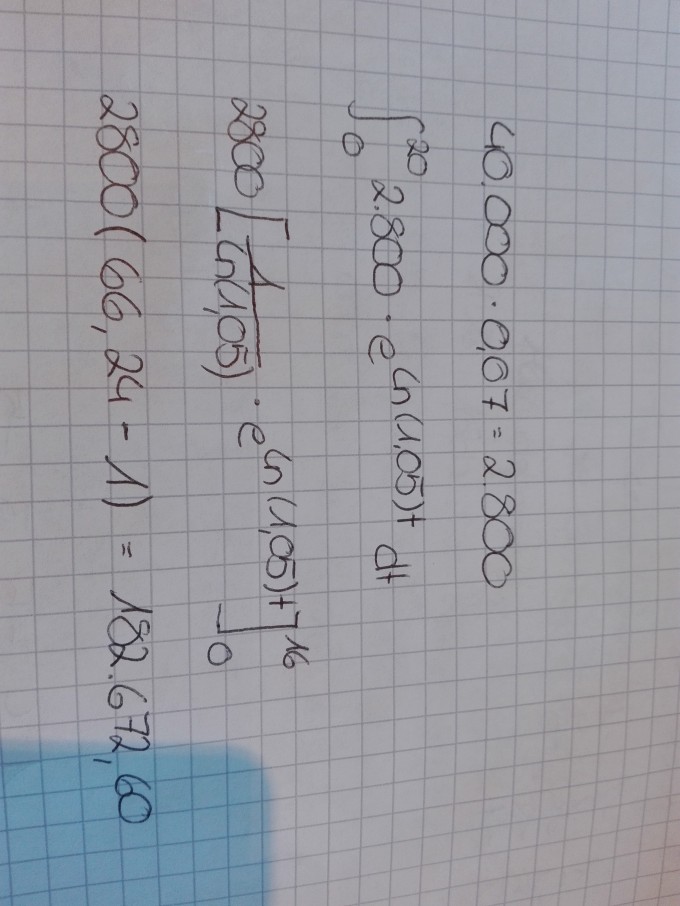 40.000 · 0,07 = 2.800
∫₀²⁰ 2.800 · e^ln(1,05)t dt
2800 [1/ln(1,05) · e^ln(1,05)t]₀¹⁶
2800 (66,24 - 1) = 182.672,60